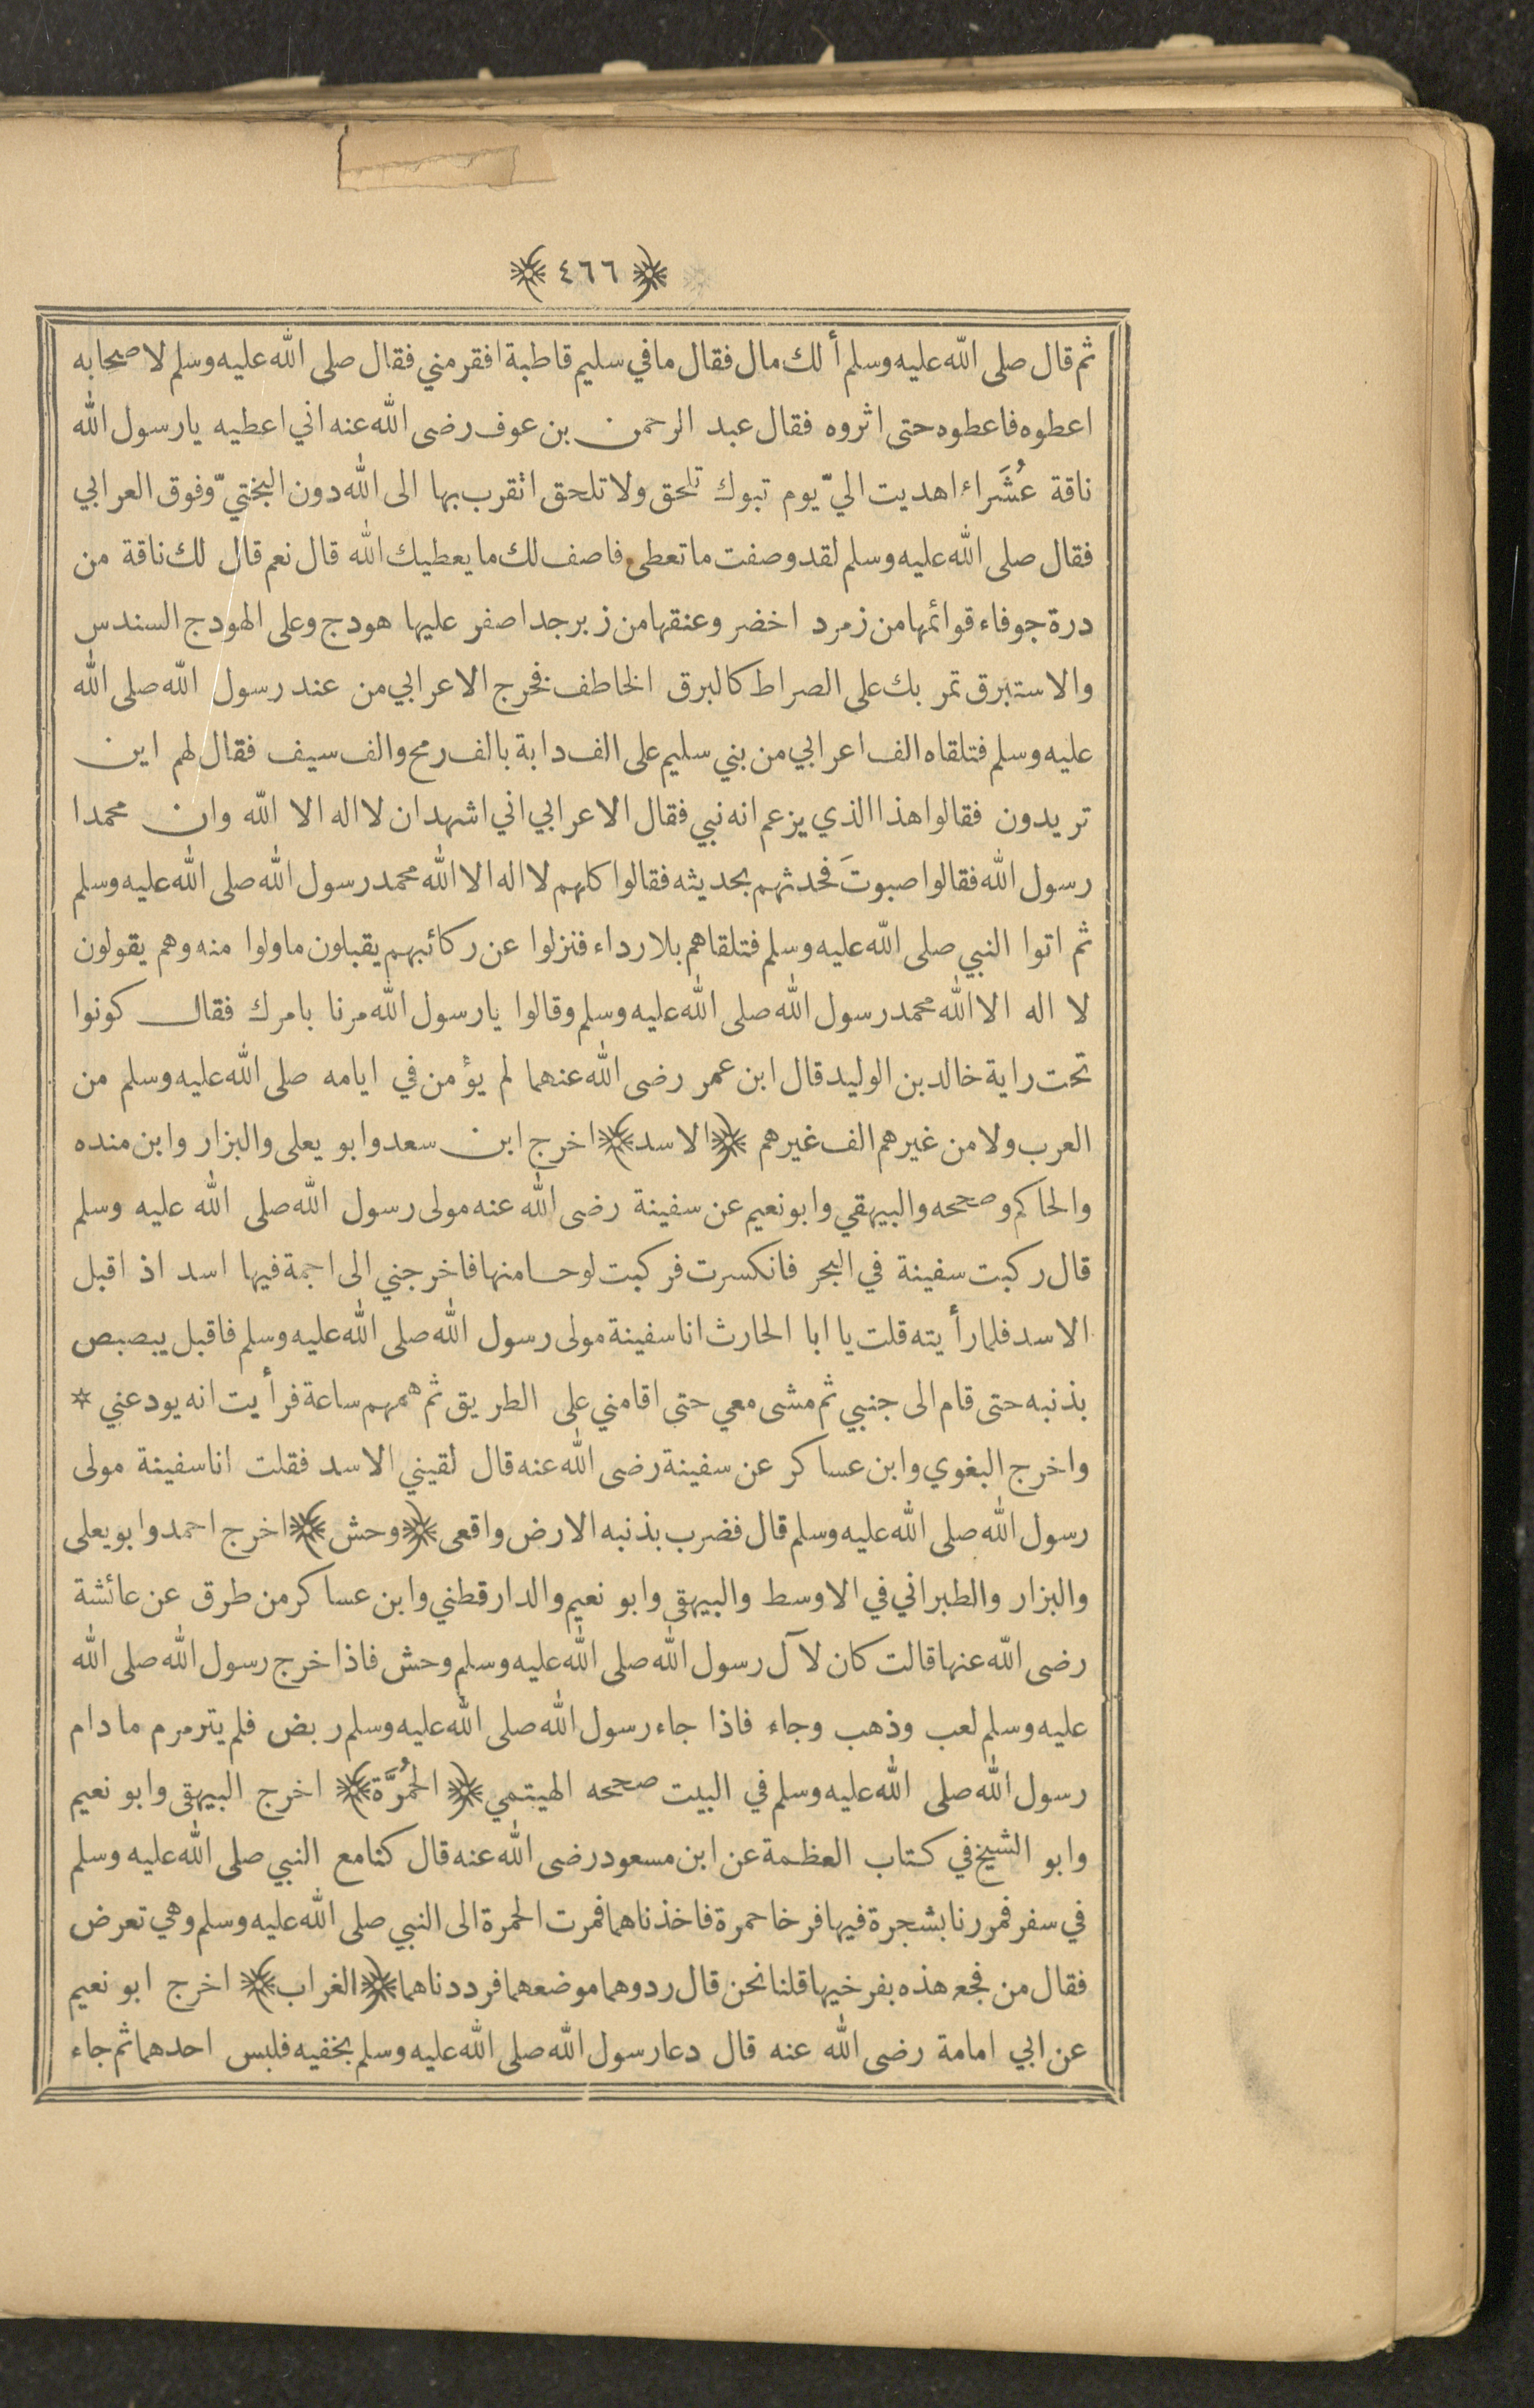 ﴿ ٤٦٦ ﴾
ثم قال صلى الله عليه وسلم أ لك مال فقال ما في سليم قاطبة افقر مني فقال صلى الله عليه وسلم لاصحابه
اعطوه فاعطوه حتى اثروه فقال عبد الرحمن بن عوف رضى الله عنه اني اعطيه يا رسول الله
ناقة عُشَراء اهديت اليّ يوم تبوك تلحق ولا تلحق اتقرب بها الى الله دون البختيّ وفوق العرابي
فقال صلى الله عليه وسلم لقد وصفت ما تعطى فاصف لك ما يعطيك الله قال نعم قال لك ناقة من
درة جوفاء قوائمها من زمرد اخضر وعنقها من زبرجد اصفر عليها هودج وعلى الهودج السندس
والاستبرق تمر بك على الصراط كالبرق الخاطف فخرج الاعرابي من عند رسول الله صلى الله
عليه وسلم فتلقاه الف اعرابي من بني سليم على الف دابة بالف رمح والف سيف فقال لهم اين
تريدون فقالوا هذا الذي يزعم انه نبي فقال الاعرابي اني اشهد ان لا اله الا الله وان محمدا
رسول الله فقالوا صبوتَ فحدثهم بحديثه فقالوا كلهم لا اله الا الله محمد رسول الله صلى الله عليه وسلم
ثم اتوا النبي صلى الله عليه وسلم فتلقاهم بلا رداء فنزلوا عن ركائبهم يقبلون ما ولوا منه وهم يقولون
لا اله الا الله محمد رسول الله صلى الله عليه وسلم وقالوا يا رسول الله مرنا بامرك فقال كونوا
تحت راية خالد بن الوليد قال ابن عمر رضى الله عنهما لم يؤمن في ايامه صلى الله عليه وسلم من
العرب ولا من غيرهم الف غيرهم ﴿ الاسد ﴾ اخرج ابن سعد وابو يعلى والبزار وابن منده
والحاكم وصححه والبيهقي وابو نعيم عن سفينة رضى الله عنه مولى رسول الله صلى الله عليه وسلم
قال ركبت سفينة في البحر فانكسرت فركبت لوحا منها فاخرجني الى اجمة فيها اسد اذ اقبل
الاسد فلما رأيته قلت يا ابا الحارث انا سفينة مولى رسول الله صلى الله عليه وسلم فاقبل يبصبص
بذنبه حتى قام الى جنبي ثم مشى معي حتى اقامني على الطريق ثم همهم ساعة فرأيت انه يودعني *
واخرج البغوي وابن عساكر عن سفينة رضى الله عنه قال لقيني الاسد فقلت انا سفينة مولى
رسول الله صلى الله عليه وسلم قال فضرب بذنبه الارض واقعى ﴿ وحش ﴾ اخرج احمد وابو يعلى
والبزار والطبراني في الاوسط والبيهقى وابو نعيم والدارقطني وابن عساكر من طرق عن عائشة
رضى الله عنها قالت كان لآل رسول الله صلى الله عليه وسلم وحش فاذا خرج رسول الله صلى الله
عليه وسلم لعب وذهب وجاء فاذا جاء رسول الله صلى الله عليه وسلم ربض فلم يترمرم ما دام
رسول الله صلى الله عليه وسلم في البيت صححه الهيتمي ﴿ الحُمَّرَة ﴾ اخرج البيهقى وابو نعيم
وابو الشيخ في كتاب العظمة عن ابن مسعود رضى الله عنه قال كنا مع النبي صلى الله عليه وسلم
في سفر فمررنا بشجرة فيها فرخا حمرة فاخذناهما فمرت الحمرة الى النبي صلى الله عليه وسلم وهي تعرض
فقال من فجع هذه بفرخيها قلنا نحن قال ردوهما موضعهما فرددناهما ﴿ الغراب ﴾ اخرج ابو نعيم
عن ابي امامة رضى الله عنه قال دعا رسول الله صلى الله عليه وسلم بخفيه فلبس احدهما ثم جاء